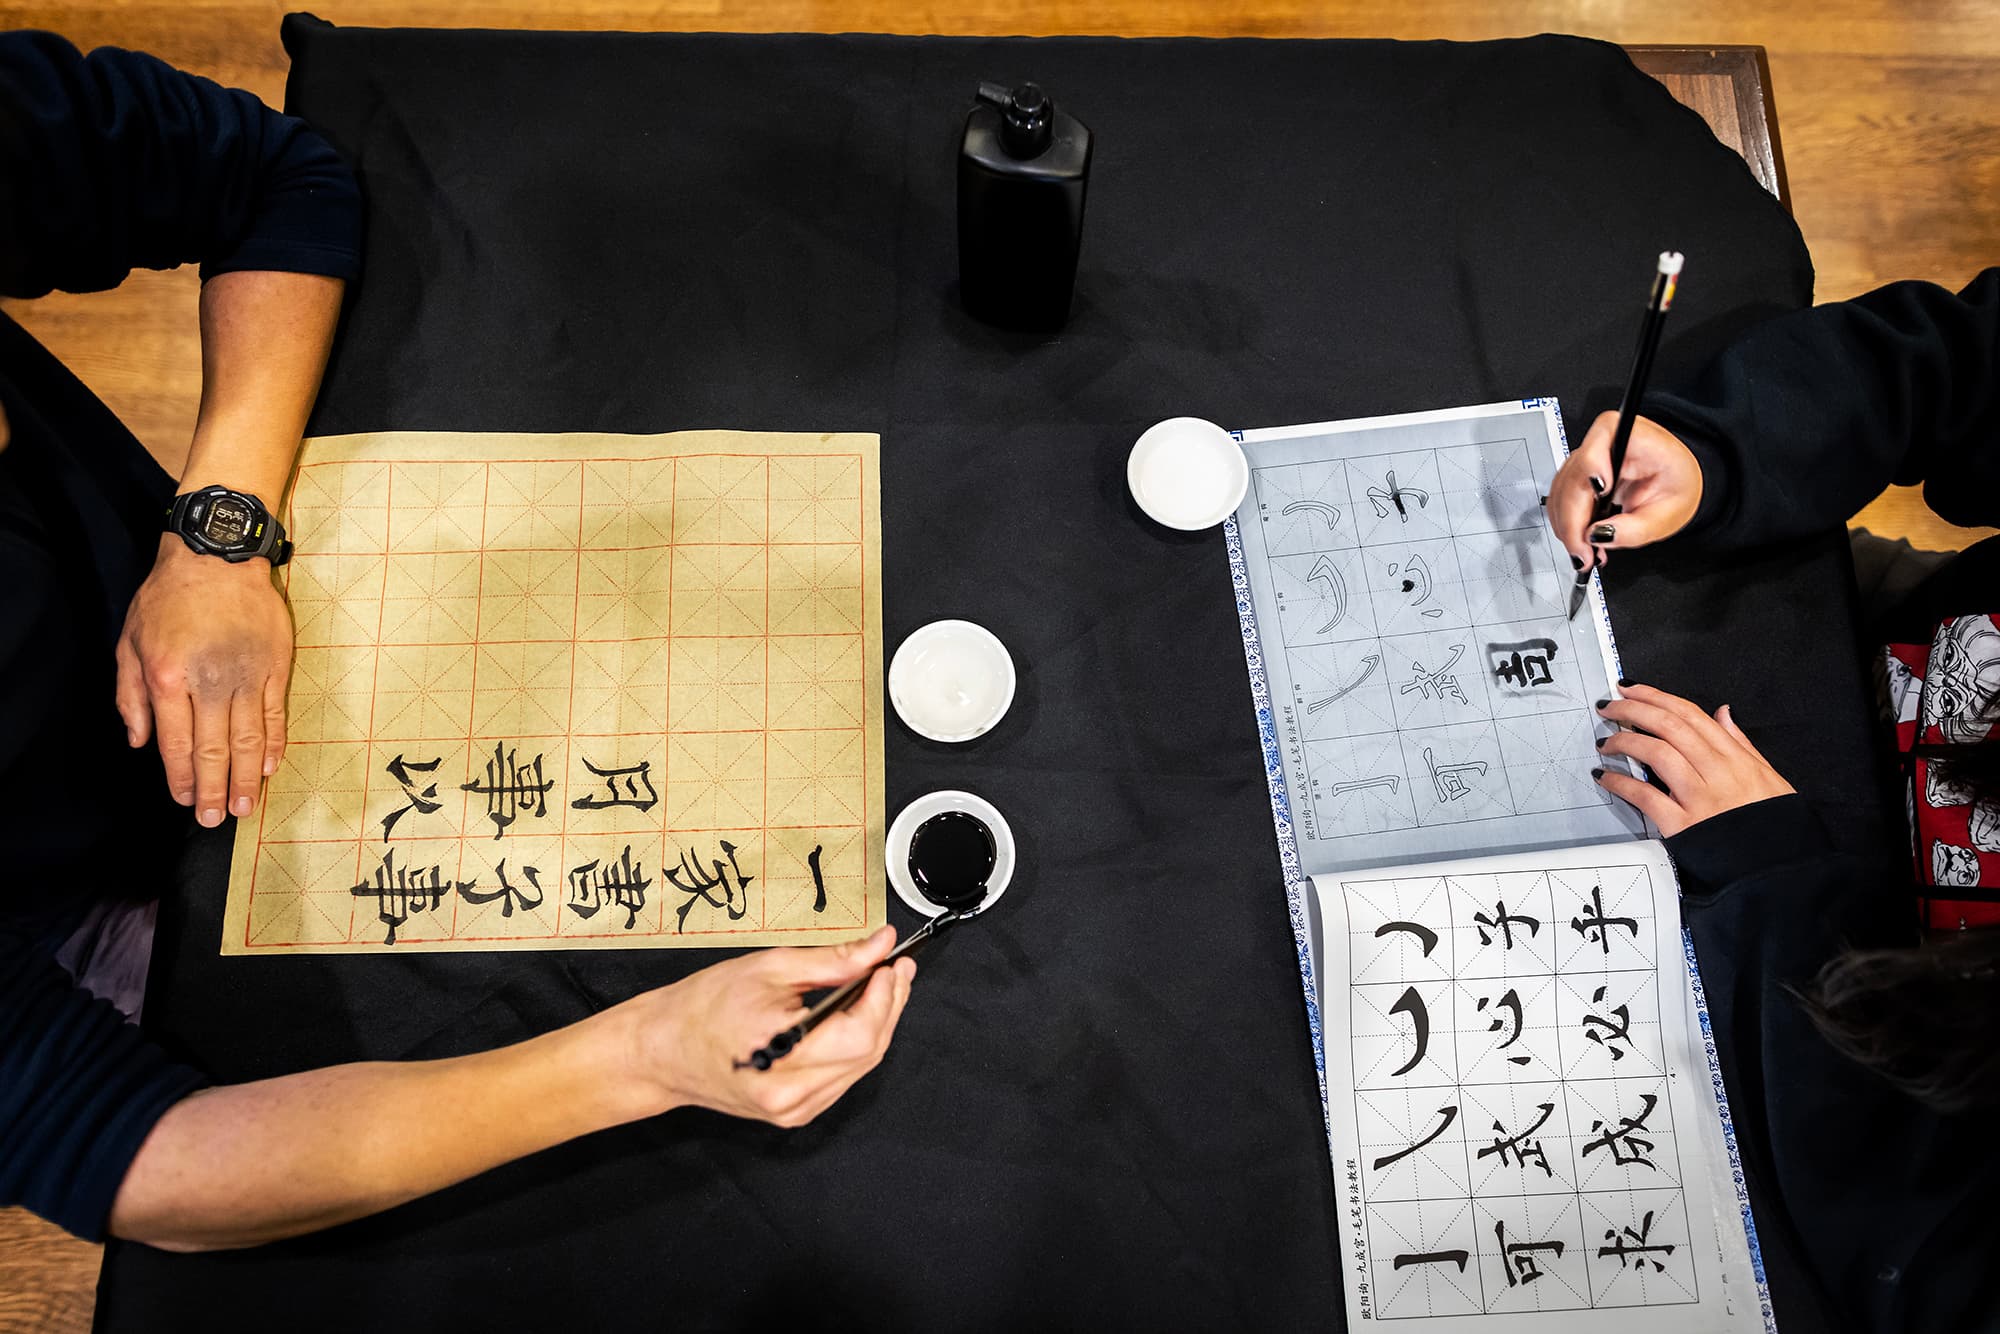 一家書子事
月事以
欧阳询—九成宫·毛笔书法教程
可武心子
求成必乎
4
欧阳询—九成宫·毛笔书法教程
可武心子